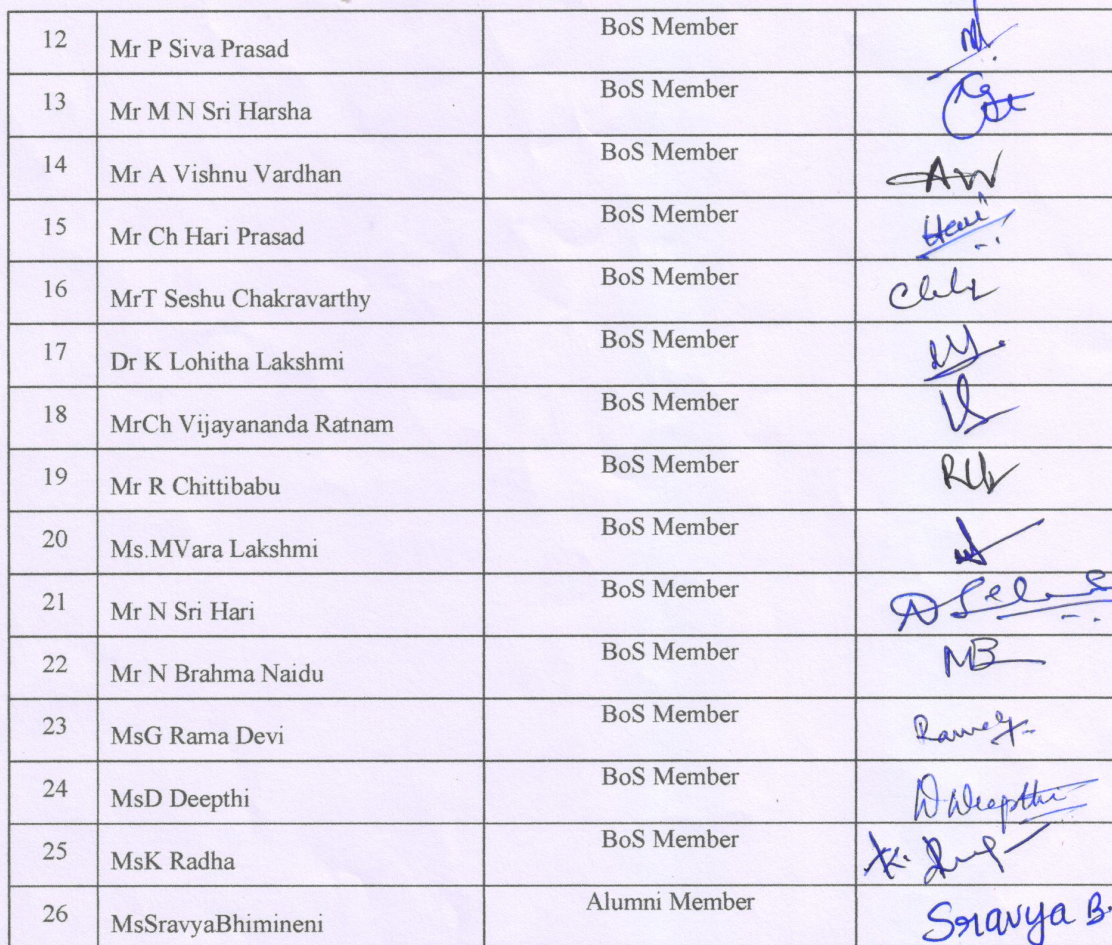 12 Mr P Siva Prasad BoS Member
13 Mr M N Sri Harsha BoS Member
14 Mr A Vishnu Vardhan BoS Member AVV
15 Mr Ch Hari Prasad BoS Member Hari
16 MrT Seshu Chakravarthy BoS Member
17 Dr K Lohitha Lakshmi BoS Member
18 MrCh Vijayananda Ratnam BoS Member
19 Mr R Chittibabu BoS Member
20 Ms.MVara Lakshmi BoS Member
21 Mr N Sri Hari BoS Member
22 Mr N Brahma Naidu BoS Member NB
23 MsG Rama Devi BoS Member
24 MsD Deepthi BoS Member D Deepthi
25 MsK Radha BoS Member
26 MsSravyaBhimineni Alumni Member Sravya B.